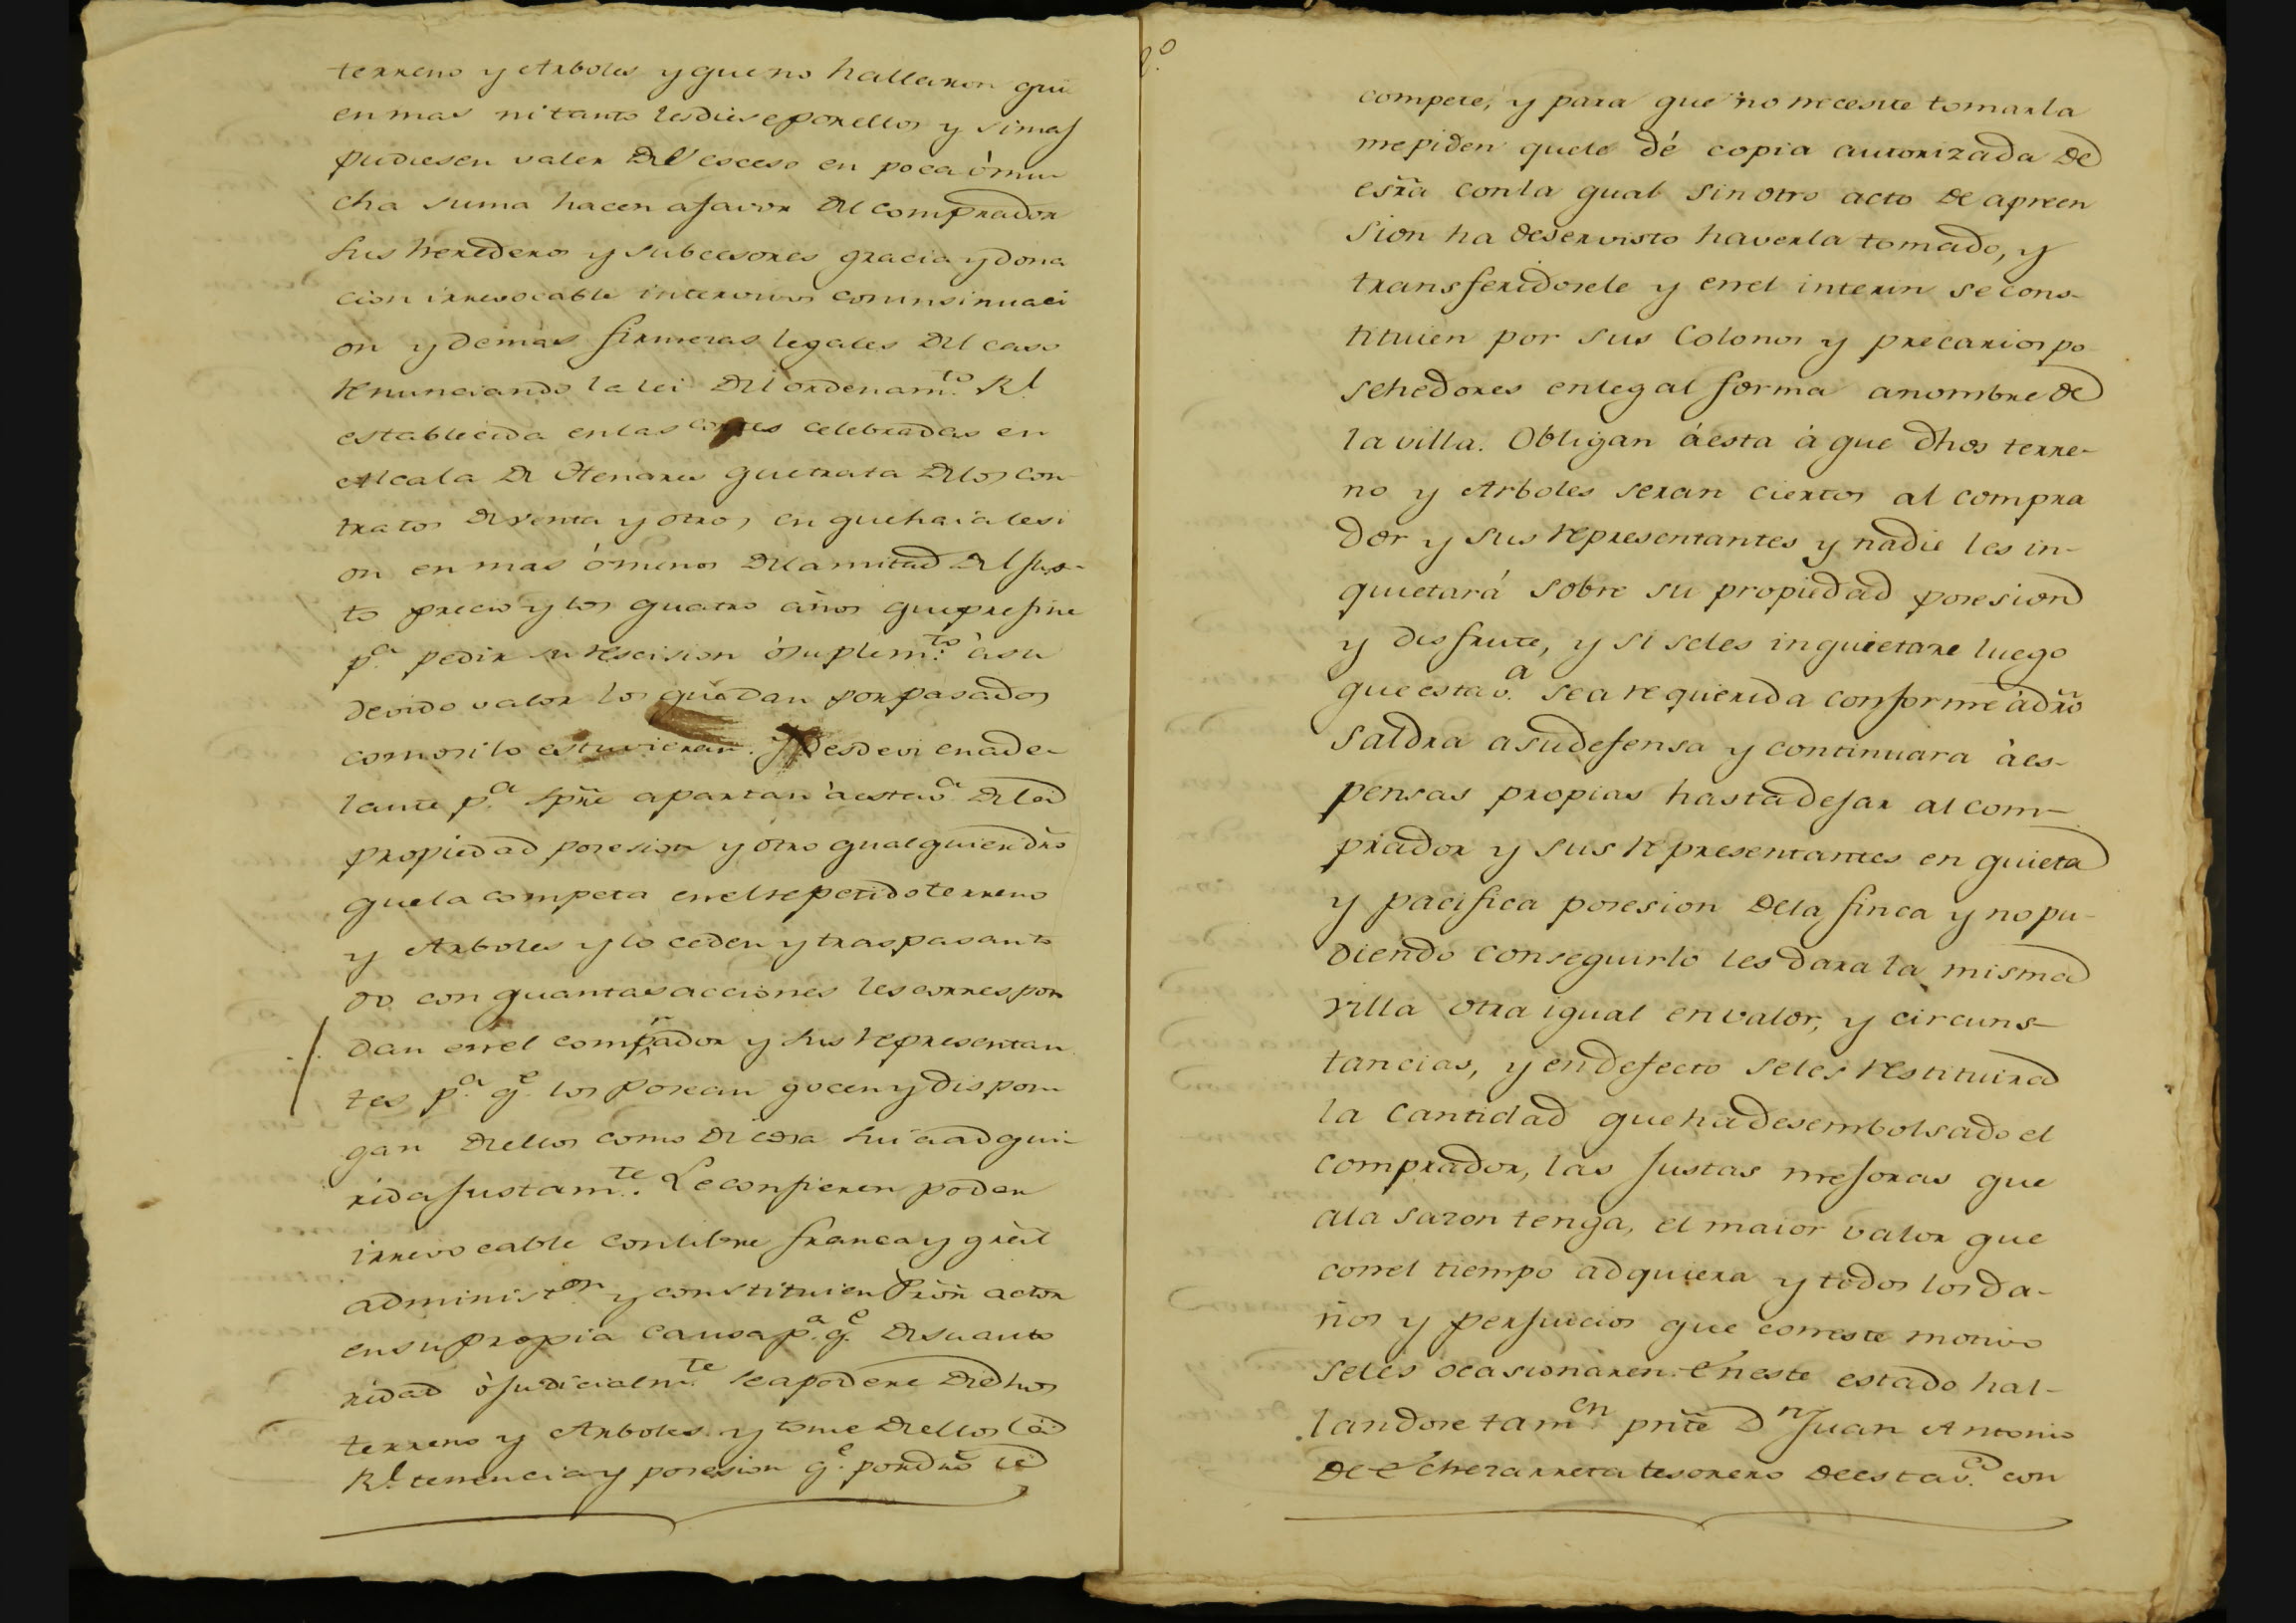 terreno y Arboles y que no hallaron qui
en mas ni tanto les diese por ellos y si mas
pudiesen valer del esceso en poca ò mu
cha suma hacen a favor del comprador
sus herederos y subcesores gracia y dona
cion irrevocable intervivos con insinuaci
on y demas firmezas legales del caso
renunciando la lei del ordenam.to R.l
establecida en las cortes celebradas en
Alcala de Henares que trata de los con
tratos de venta y otros en que haia lesi
on en mas ó menos de la mitad del jus-
to precio y los quatro años que prefine
p.a pedir su rescision ò suplem.to à su
devido valor los que dan por pasados
como si lo estuvieran. Y desde oi en ade-
lante p.a spre apartan à esta v.a de la
propiedad posesion y otro qualquier dro
que la competa en el repetido terreno
y Arboles y lo ceden y traspasan to
do con quantas acciones les correspon
dan en el comprador y sus representan
tes p.a q.e los posean gocen y dispon
gan de ellos como de cosa suia adqui
rida justam.te Le confieren poder
irrevocable con libre franca y gral
administ.on y constituien Pror actor
en su propia causa p.a q.e de su auto
ridad ò judicialm.te se apodere de dhos
terreno y Arboles y tome de ellos la
R.l tenencia y posesion q.e por dro le
compete, y para que no necesite tomarla
me piden que le dé copia autorizada de
esrra con la qual sin otro acto de apreen
sion ha de ser visto haverla tomado, y
transferidosele y en el interin se cons-
tituien por sus Colonos y precarios po
sehedores en legal forma a nombre de
la villa. Obligan à esta à que dhos terre-
no y Arboles seran ciertos al compra
dor y sus representantes y nadie les in-
quietará sobre su propiedad posesion
y disfrute, y si se les inquietare luego
que esta v.a sea requerida conforme à dro
saldra a su defensa y continuara à es-
pensas propias hasta dejar al com-
prador y sus representantes en quieta
y pacifica posesion de la finca y no pu-
diendo conseguirlo les dara la misma
villa otra igual en valor, y circuns-
tancias, y en defecto se les restituira
la cantidad que ha desembolsado el
comprador, las justas mejoras que
a la sazon tenga, el maior valor que
con el tiempo adquiera y todos los da-
ños y perjuicios que con este motivo
se les ocasionaren. En este estado hal-
landose tam.en prnte D.n Juan Antonio
de Echezarreta tesorero de esta v.a con